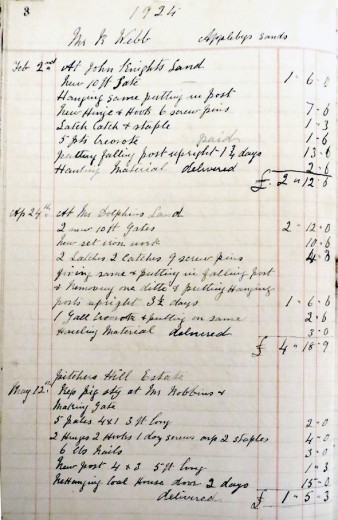 8
1924
Mr W Webb Applebys Sands
Feb 2nd At John Knights Land
New 10ft Gate 1-6-0
Hanging same putting in post
New Hinge & Hooks 6 screw pins 7-6
Latch Catch & staple 1-3
5 pts Creosote paid 1-6
putting falling post upright 1¼ days 13-6
Hauling Material delivered 2-6
£ 2-12-6
Ap 24th At Mr Dolphins Land
2 new 10ft Gates 2-12-0
New set iron work 10-6
2 Latches 2 Catches 9 screw pins 4-3
fixing same & putting in falling Post
& Removing one ditto & putting Hanging
posts upright 3½ days 1-6-6
1 Gall Creosote & putting on same 2-6
Hauling Material delivered 3-0
£ 4-18-9
Pitchers Hill Estate
May 12th Rep pig sty at Mr Robbins &
Making Gate
5 pales 4x1 3 ft long 2-0
2 Hinges 2 Hooks 1 doz screws 2 staples 4-0
6 lbs Nails 3-0
New post 4 x 3 5ft long 1-3
ReHanging Coal House door 2 days 15-0
delivered £ 1-5-3